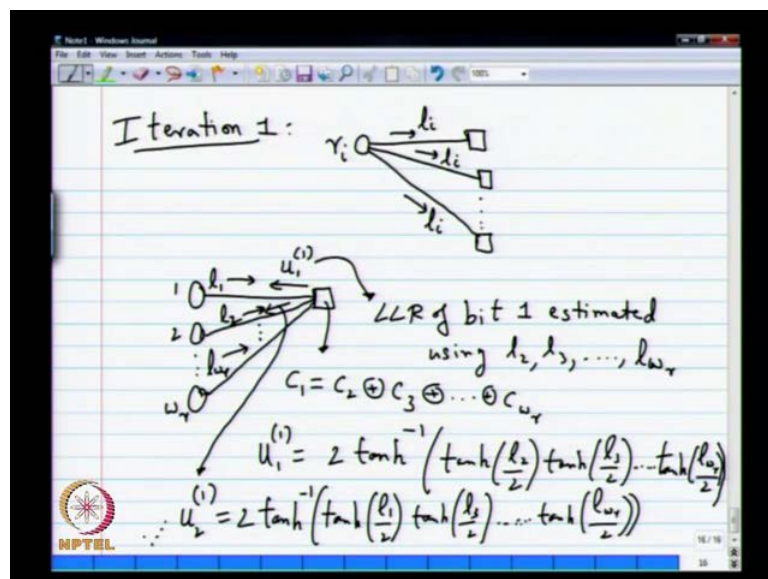 Note1 - Windows Journal
File Edit View Insert Actions Tools Help
100%
Iteration 1:
r_i → l_i
→ l_i
⋮
→ l_i
1 l_1 → ← u_1^{(1)}
2 l_2 →
⋮ ⋮
w_r l_{w_r} →
LLR of bit 1 estimated
using l_2, l_3, ...., l_{w_r}
C_1 = C_2 ⊕ C_3 ⊕ ... ⊕ C_{w_r}
u_1^{(1)} = 2 tanh^{-1} (tanh(l_2/2) tanh(l_3/2) .... tanh(l_{w_r}/2))
u_2^{(1)} = 2 tanh^{-1} (tanh(l_1/2) tanh(l_3/2) ..... tanh(l_{w_r}/2))
⋮
NPTEL
16/16
16